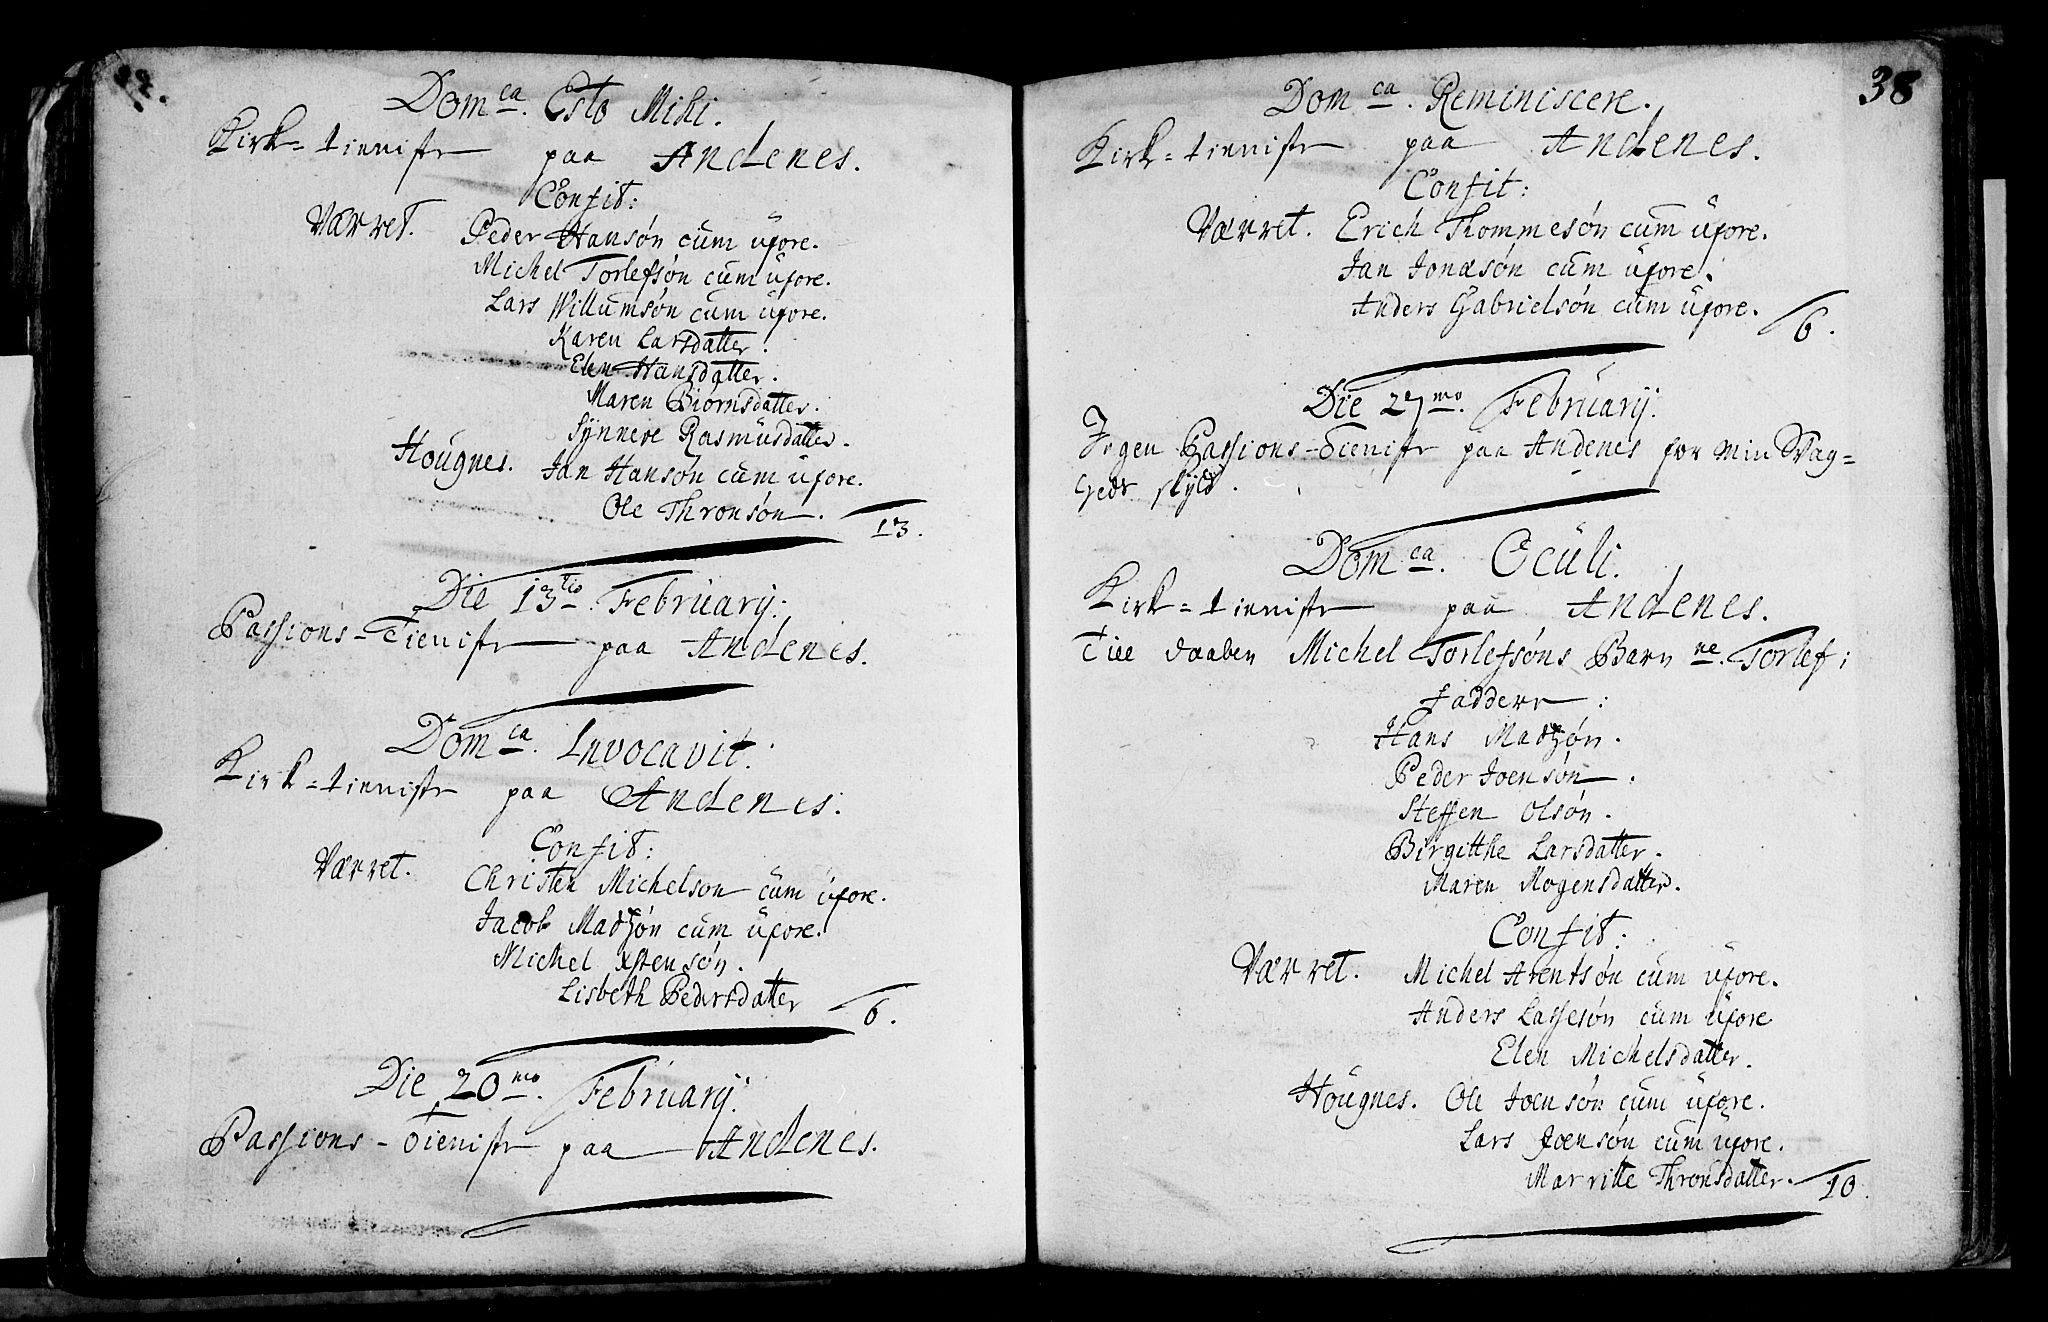 Dom ca. Esto Mihi.
Kirk-tieniste paa Andenes.
Confit:
Værret. Peder Hansøn cum uxore.
Michel Torlefsøn cum uxore.
Lars Willumsøn cum uxore.
Karen Larsdatter.
Elen Hansdatter.
Maren Biørnsdatter.
Synneve Rasmusdatter.
Hougnes. Jan Hansøn cum uxore.
Ole Thronsøn.
13.
Die 13 tio. February:
Passions-Tieniste paa Andenes.
Dom ca. Invocavit:
Kirk-tieniste paa Andenes.
Confit:
Værret. Christen Michelson cum uxore.
Jacob Madzøn cum uxore.
Michel Ostensøn.
Lisbeth Pedersdatter
6.
Die 20 mo. February:
Passions-Tieniste paa Andenes.
38
Dom ca. Reminiscere.
Kirk-tieniste paa Andenes.
Confit:
Værret. Erich Thommesøn cum uxore.
Jan Jonæsøn cum uxore.
Anders Gabrielsøn cum uxore.
6.
Die 27 mo. February:
Ingen Passions-Tieniste paa Andenes for min Svag=
heds skyld.
Dom ca. Oculi.
Kirk-tieniste paa Andenes.
daaben Michel Torlefsøns Barn ne. Torlef:
Faddere:
Hans Madzøn.
Peder Joensøn.
Steffen Olsøn.
Birgitthe Larsdatter.
Maren Mogensdatter.
Confit:
Værret. Michel Arentsøn cum uxore.
Anders Lassesøn cum uxore
Elen Michelsdatter.
Hougnes. Ole Joensøn cum uxore.
Lars Joensøn cum uxore.
Marritte Thronsdatter.
10.